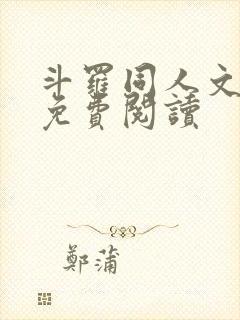 斗羅同人文
免費閱讀
鄭蒲